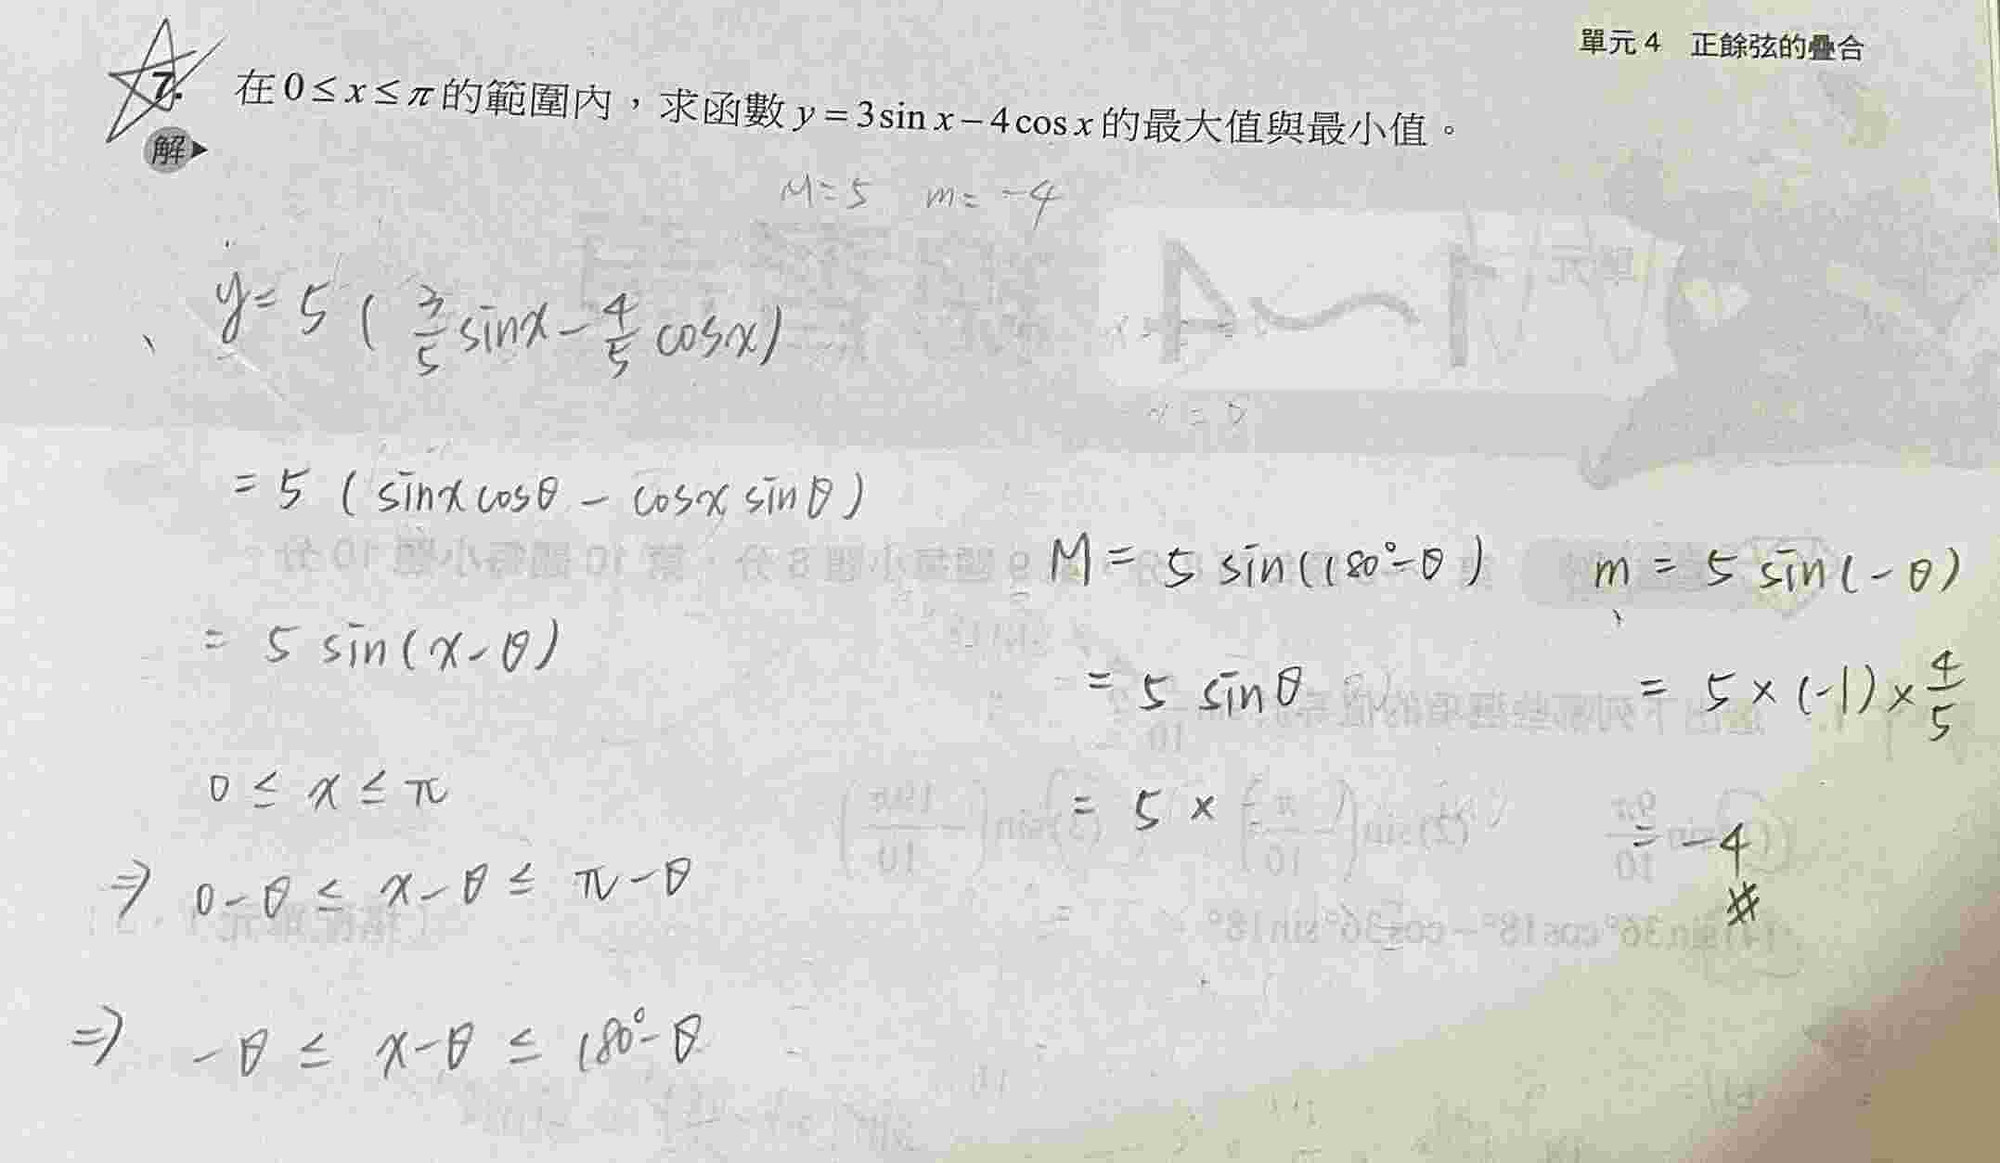 單元 4 正餘弦的疊合
7. 在 0 ≤ x ≤ π 的範圍內，求函數 y = 3 sin x − 4 cos x 的最大值與最小值。
解
M = 5 m = -4
y = 5 ( 3/5 sinx - 4/5 cosx )
= 5 ( sinx cosθ - cosx sinθ )
= 5 sin(x-θ)
0 ≤ x ≤ π
⇒ 0-θ ≤ x-θ ≤ π-θ
⇒ -θ ≤ x-θ ≤ 180°-θ
M = 5 sin(180°-θ)
= 5 sinθ
= 5 ×
m = 5 sin(-θ)
= 5 × (-1) × 4/5
= -4
#